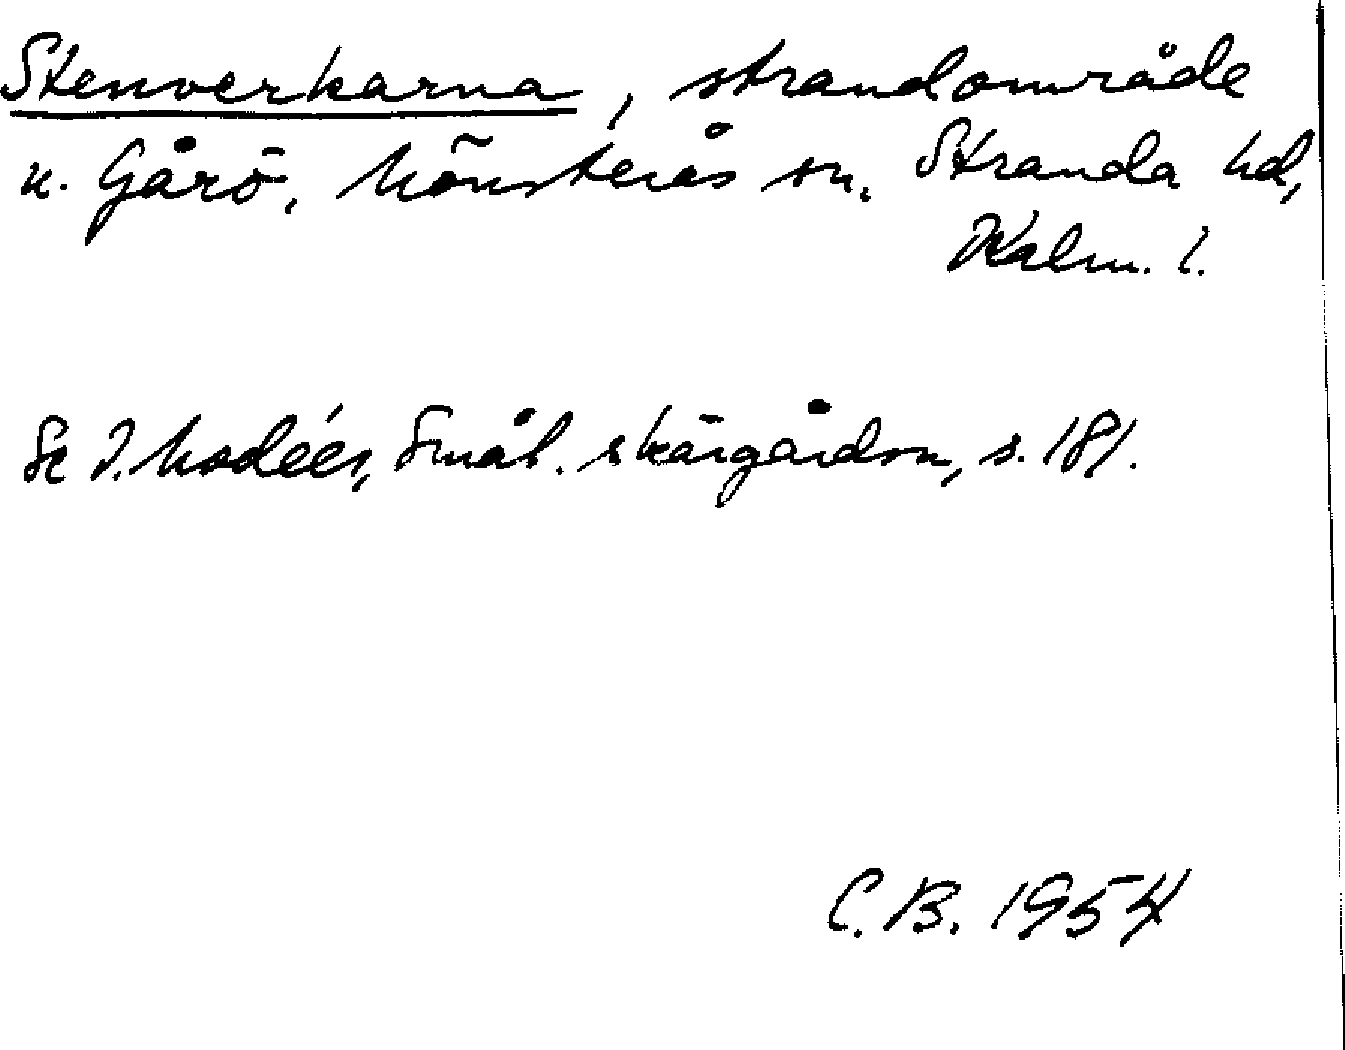 Stenverkarna, strandområde
u. Gårö, Mönsterås sn. Stranda hd,
Kalm. l.
Se I. Modéer, Smål. skärgården, s. 181.
C. B. 1954